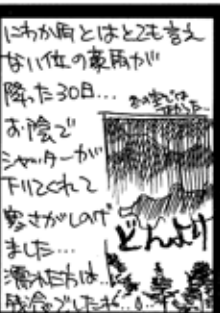 にわか雨とはとても言え
ない位の豪雨が
降った30日…
お陰で
シャッターが
下りてくれて
寒さがしのげ
ました…
濡れた方は…
残念でしたね…
どんより